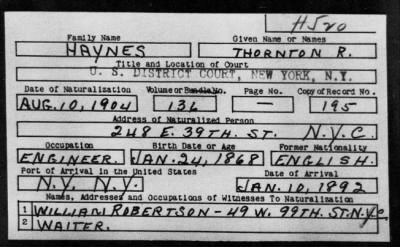 H520
Family Name Given Name or Names
HAYNES THORNTON R.
Title and Location of Court
U. S. DISTRICT COURT, NEW YORK, N.Y.
Date of Naturalization Volume or Bundle No. Page No. Copy of Record No.
AUG. 10, 1904 136 — 195
Address of Naturalized Person
248 E. 39TH. ST. N.Y.C.
Occupation Birth Date or Age Former Nationality
ENGINEER. JAN. 24, 1868 ENGLISH.
Port of Arrival in the United States Date of Arrival
N.Y. N.Y. JAN. 10, 1892
Names, Addresses and Occupations of Witnesses To Naturalization
1 WILLIAM ROBERTSON - 49 W. 99TH. ST. N.Y.C.
2 WAITER.